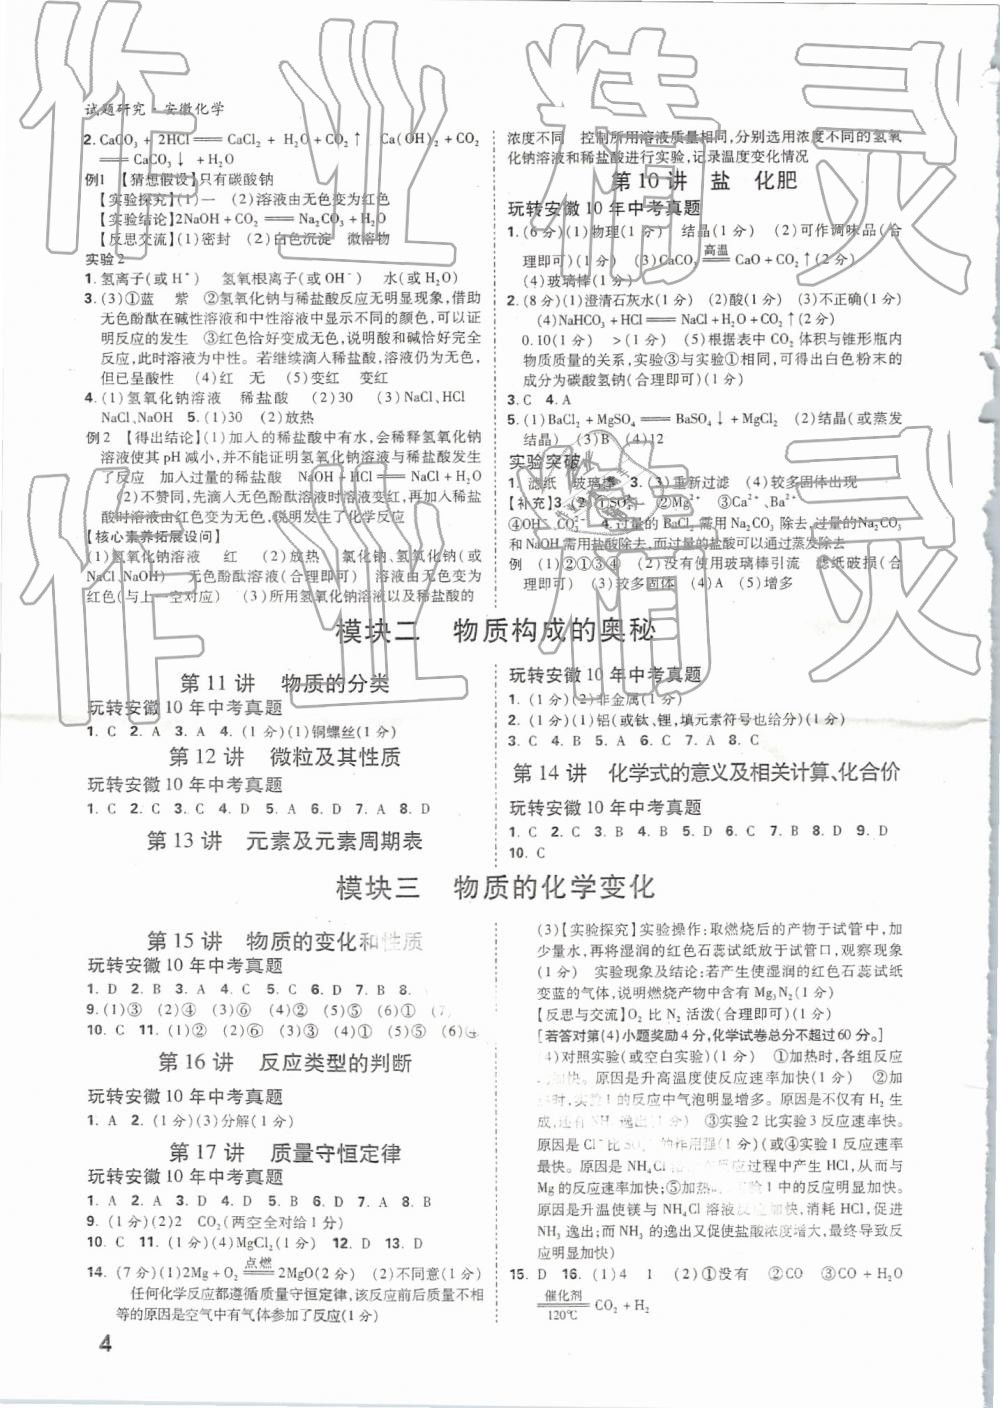 作业精灵
试题研究·安徽化学
2. CaCO₃ + 2HCl══CaCl₂ + H₂O + CO₂↑ Ca(OH)₂ + CO₂
══CaCO₃↓ + H₂O
例1 【猜想假设】只有碳酸钠
【实验探究】(1)一 (2)溶液由无色变为红色
【实验结论】2NaOH + CO₂══Na₂CO₃ + H₂O
【反思交流】(1)密封 (2)白色沉淀 微溶物
实验2
1. 氢离子(或H⁺) 氢氧根离子(或OH⁻) 水(或H₂O)
3. (3)①蓝 紫 ②氢氧化钠与稀盐酸反应无明显现象,借助
无色酚酞在碱性溶液和中性溶液中显示不同的颜色,可以证
明反应的发生 ③红色恰好变成无色,说明酸和碱恰好完全
反应,此时溶液为中性。若继续滴入稀盐酸,溶液仍为无色,
但已呈酸性 (4)红 无 (5)变红 变红
4. (1)氢氧化钠溶液 稀盐酸 (2)30 (3)NaCl、HCl
NaCl、NaOH 5. (1)30 (2)放热
例2 【得出结论】(1)加入的稀盐酸中有水,会稀释氢氧化钠
溶液使其pH减小,并不能证明氢氧化钠溶液与稀盐酸发生
了反应 加入过量的稀盐酸 NaOH + HCl══NaCl + H₂O
(2)不赞同,先滴入无色酚酞溶液时溶液变红,再加入稀盐
酸时溶液由红色变为无色,说明发生了化学反应
【核心素养拓展设问】
(1)氢氧化钠溶液 红 (2)放热 氯化钠、氢氧化钠(或
NaCl、NaOH) 无色酚酞溶液(合理即可) 溶液由无色变为
红色(与上一空对应) (3)所用氢氧化钠溶液以及稀盐酸的
浓度不同 控制所用溶液质量相同,分别选用浓度不同的氢氧
化钠溶液和稀盐酸进行实验,记录温度变化情况
第10讲 盐 化肥
玩转安徽10年中考真题
1. (6分)(1)物理(1分) 结晶(1分) (2)可作调味品(合
理即可)(1分) (3)CaCO₃ 高温══ CaO + CO₂↑(2分)
(4)玻璃棒(1分)
2. (8分)(1)澄清石灰水(1分) (2)酸(1分) (3)不正确(1分)
(4)NaHCO₃ + HCl══NaCl + H₂O + CO₂↑(2分)
0.10(1分) >(1分) (5)根据表中CO₂体积与锥形瓶内
物质质量的关系,实验③与实验①相同,可得出白色粉末的
成分为碳酸氢钠(合理即可)(1分)
3. C 4. A
5. (1)BaCl₂ + MgSO₄══BaSO₄↓ + MgCl₂ (2)结晶(或蒸发
结晶) (3)B (4)12
实验突破
1. 滤纸 玻璃棒 3. (3)重新过滤 (4)较多固体出现
【补充】3. (2)①SO₄²⁻ ②Mg²⁺ ③Ca²⁺、Ba²⁺
④OH⁻、CO₃²⁻ 4. 过量的BaCl₂需用Na₂CO₃除去,过量的Na₂CO₃
和NaOH需用盐酸除去,而过量的盐酸可以通过蒸发除去
例 (1)②①③④ (2)没有使用玻璃棒引流 滤纸破损(合
理即可) (3)较多固体 (4)A (5)增多
模块二 物质构成的奥秘
第11讲 物质的分类
玩转安徽10年中考真题
1. C 2. A 3. A 4. (1分)(1)铜螺丝(1分)
第12讲 微粒及其性质
玩转安徽10年中考真题
1. C 2. C 3. C 4. D 5. A 6. D 7. A 8. D
第13讲 元素及元素周期表
玩转安徽10年中考真题
1. (1分)(2)非金属(1分)
2. (1分)(1)铝(或钛、锂,填元素符号也给分)(1分)
3. C 4. B 5. A 6. C 7. A 8. C
第14讲 化学式的意义及相关计算、化合价
玩转安徽10年中考真题
1. C 2. C 3. B 4. B 5. C 6. D 7. B 8. D 9. D
10. C
模块三 物质的化学变化
第15讲 物质的变化和性质
玩转安徽10年中考真题
1. D 2. B 3. A 4. C 5. C 6. D 7. B 8.
9. (1)③ (2)④ (3)⑥ (4)② (5)⑥ (6)① (7)
10. C 11. (1)② (2)⑥ (3)③ (4)① (5)⑤ (6)④
第16讲 反应类型的判断
玩转安徽10年中考真题
1. A 2. (1分)(3)分解(1分)
第17讲 质量守恒定律
玩转安徽10年中考真题
1. A 2. A 3. D 4. D 5. C 6. D 7. A 8. B
9. (1分)(2)2 CO₂(两空全对给1分)
10. C 11. (1分)(4)MgCl₂(1分) 12. D 13. D
14. (7分)(1)2Mg + O₂ 点燃══ 2MgO(2分) (2)不同意(1分)
任何化学反应都遵循质量守恒定律,该反应前后质量不相
等的原因是空气中有气体参加了反应(1分)
(3)【实验探究】实验操作:取燃烧后的产物于试管中,加
少量水,再将湿润的红色石蕊试纸放于试管口,观察现象
(1分) 实验现象及结论:若产生使湿润的红色石蕊试纸
变蓝的气体,说明燃烧产物中含有Mg₃N₂(1分)
【反思与交流】O₂比N₂活泼(合理即可)(1分)
[若答对第(4)小题奖励4分,化学试卷总分不超过60分。]
(4)对照实验(或空白实验)(1分) ①加热时,各组反应
均加快。原因是升高温度使反应速率加快(1分) ②加
热时,实验1的反应中气泡明显增多。原因是不仅有H₂生
成,还有NH₃逸出(1分) ③实验2比实验3反应速率快。
原因是Cl⁻比SO₄²⁻的作用强(1分)(或④实验1反应速率
最快。原因是NH₄Cl溶液在反应过程中产生HCl,从而与
Mg的反应速率加快;⑤加热时实验1中的反应速率明显加快。
原因是升温使镁与NH₄Cl溶液反应加快,消耗HCl,促进
NH₃逸出;而NH₃的逸出又促使盐酸浓度增大,最终导致反
应明显加快)
15. D 16. (1)4 1 (2)①没有 ②CO ③CO + H₂O
催化剂══120℃ CO₂ + H₂
4